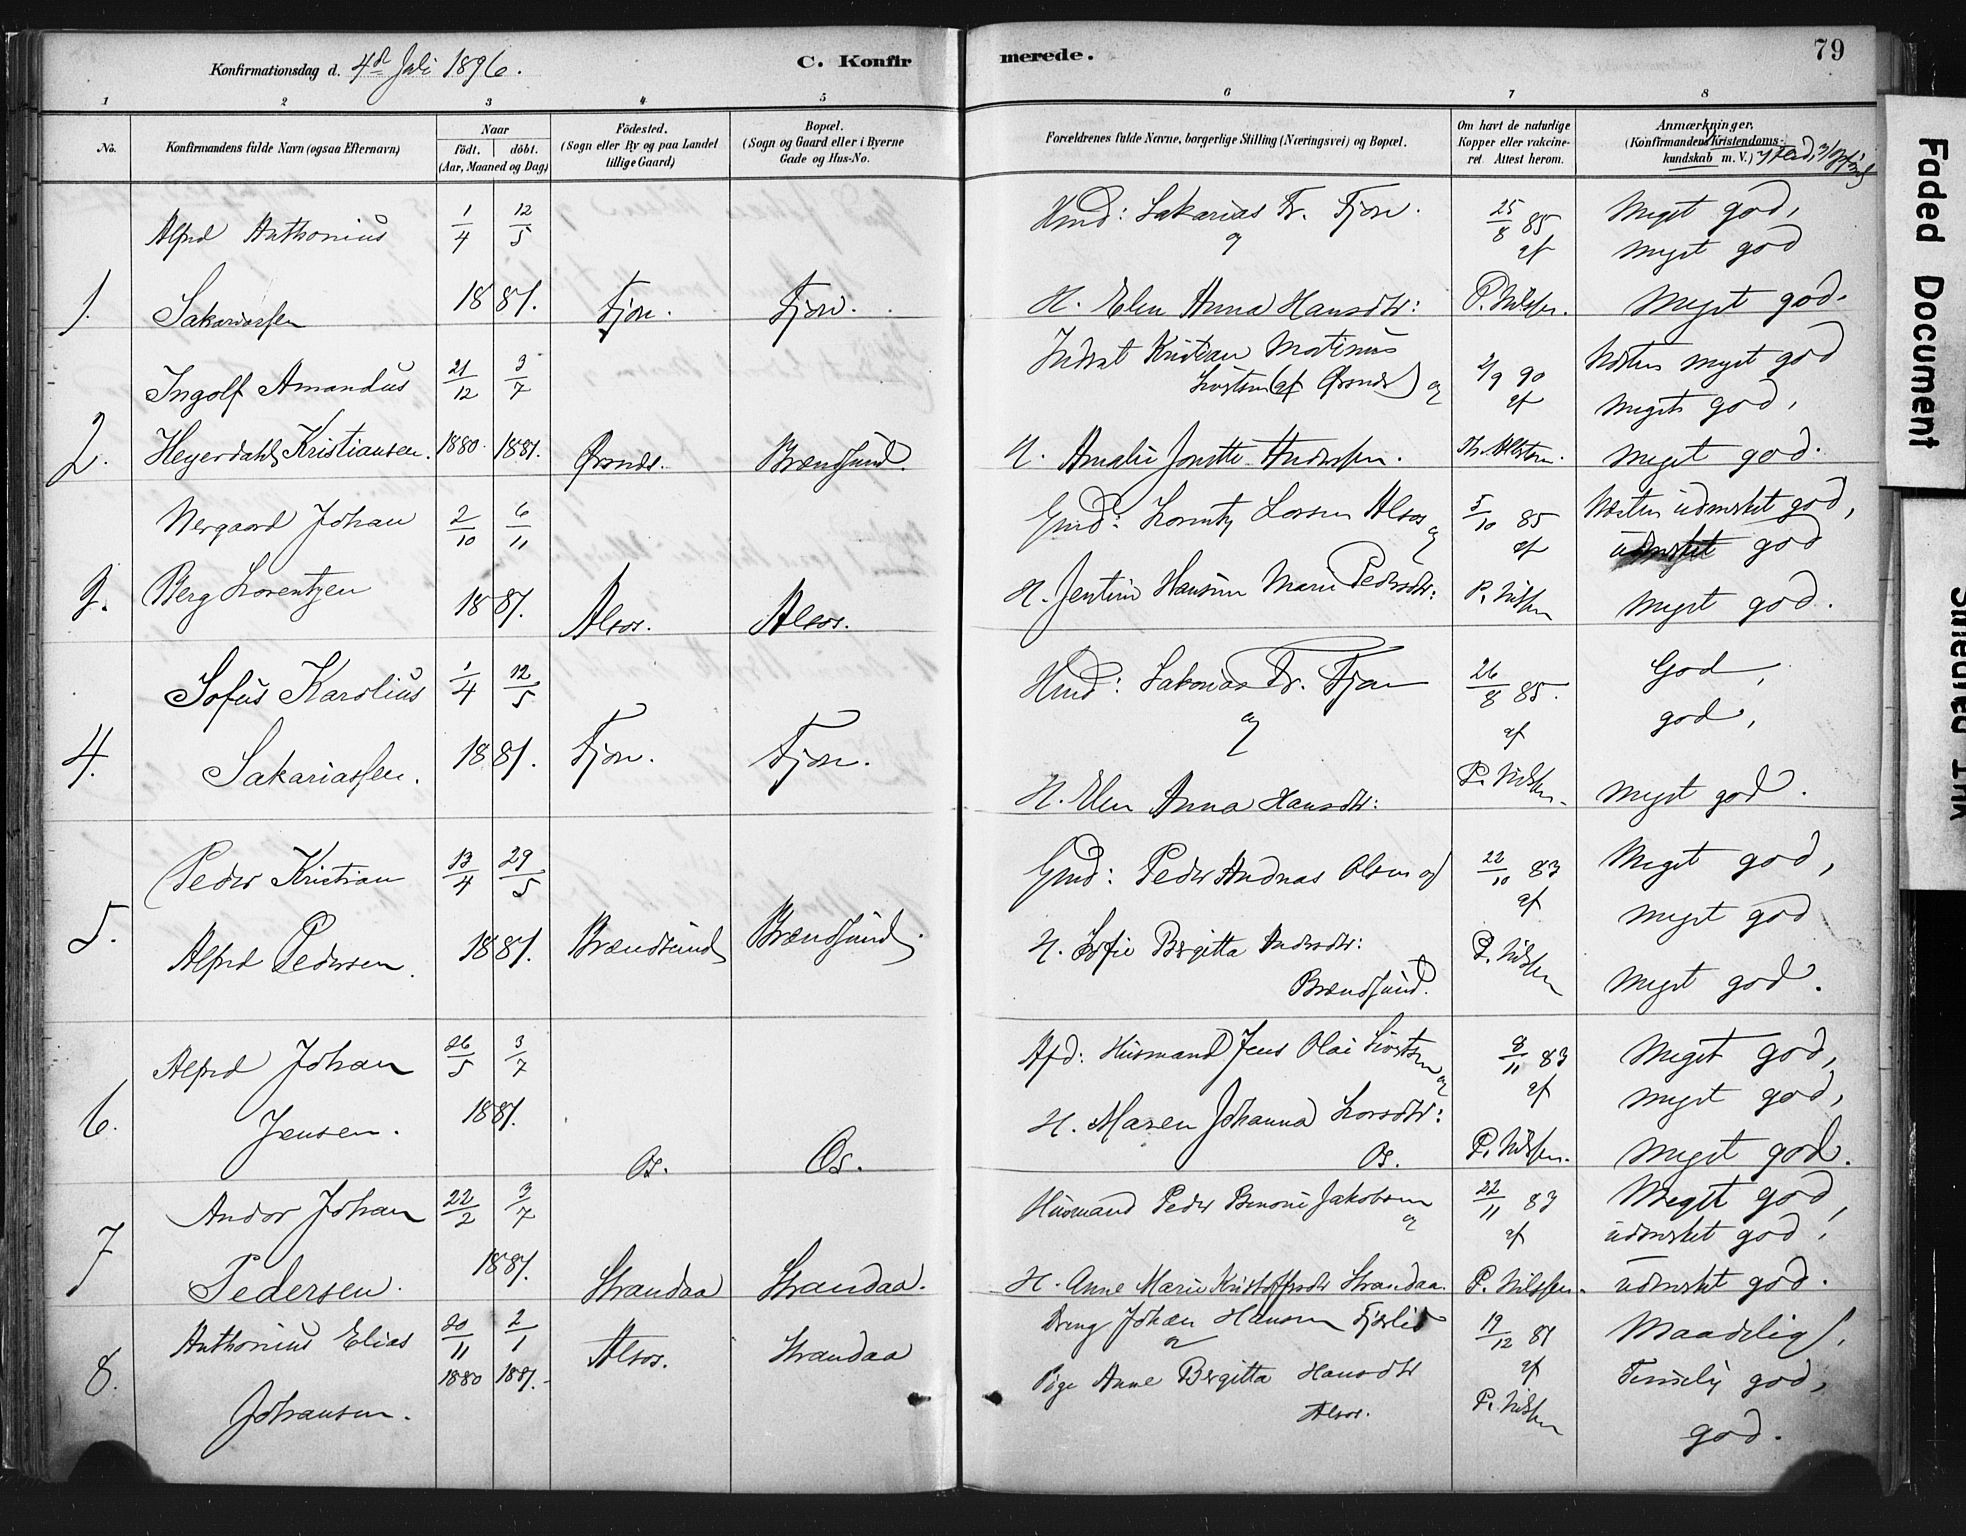 Konfirmationsdag d. 4de Juli 1896.
C. Konfirmerede.
79
1 2 3 4 5 6 7 8
No.
Konfirmandens fulde Navn (ogsaa Efternavn)
Naar
födt. döbt.
(Aar, Maaned og Dag)
Födested.
(Sogn eller By og paa Landet
tillige Gaard)
Bopæl.
(Sogn og Gaard eller i Byerne
Gade og Hus-No.
Forældrenes fulde Navne, borgerlige Stilling (Næringsvei) og Bopæl.
Om havt de naturlige
Kopper eller vakcine-
ret. Attest herom.
Anmærkninger,
(Konfirmandens Kristendoms-
kundskab m. V.)
1.
Alfred Anthonius
Sakariassen
1/4 12/5
1881.
Fjon.
Fjon.
Hmd: Sakarias Fr. Fjon.
og
H. Elen Anna Hansdtr:
25/8 85
af
P. Nilssen.
Meget god,
meget god
meget god.
2.
Ingolf Amandus
Heyerdahl Kristiansen.
21/12 3/7
1880. 1881.
Brændsund.
Inderst Kristian Martinus
og
H. Amalie Jonette Anderssen.
2/9 90
af
Næsten meget god
meget god,
meget god.
3.
Nergaard Johan
Berg Lorentzen
2/10 6/11
1881.
Alsos.
Alsos.
Gmd: Lorentz Larsen Alsos
og
H. Jentine Hansine Marie Pedersdtr:
5/10 85
af
P. Nilssen
Næsten udmerket god,
udmerket god
meget god.
4.
Sofus Karolius
Sakariassen.
1/4 12/5
1881.
Fjon.
Fjon.
Hmd: Sakarias Fr. Fjon
og
H. Elen Anna Hansdtr:
26/8 85.
af
P. Nilssen.
God,
god,
meget god.
5.
Peder Kristian
Alfred Pedersen.
13/4 29/5
1881.
Brændsund
Brændsund.
Gmd: Peder Andreas Olsen og
H. Sofie Bergitta Andersdtr:
Brændsund.
22/10 83
af
P. Nilssen
Meget god,
meget god
meget god.
6.
Alfred Johan
Jensen.
26/5 3/7
1881.
Os.
Os.
Afd: Husmand Jens Olai Sivertsen
og
H. Maren Johanna Larsdtr:
Os.
8/11 83
af
P. Nilssen.
Meget god,
meget god,
meget god.
7
Andor Johan
Pedersen.
22/2 3/7
1881.
Strandaa
Strandaa.
Husmand Peder Benoni Jakobsen
og
H. Anne Marie Kristoffersdtr Strandaa.
22/11 83
af
P. Nilssen.
Meget god,
udmerket god,
udmerket god.
8.
Anthonius Elias
Johansen.
20/11 2/1
1880 1881.
Alsos.
Strandaa
Dreng Johan Hansen Fjærlid
og
Pige Anne Bergitta Hansdtr
Alsos.
19/12 81
af
P. Nilssen
Maadelig,
Temelig god,
god.
Faded Document